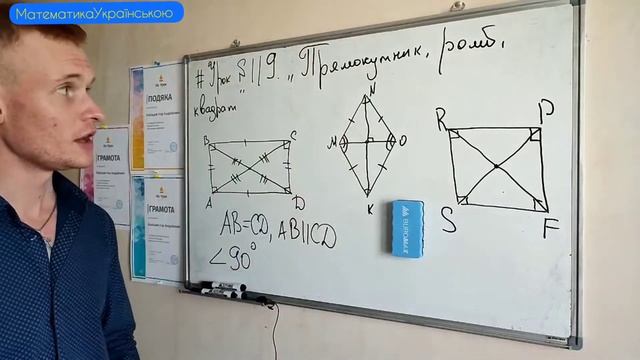 МатематикаУкраїнською
# Урок §1 19 „Прямокутник, ромб,
квадрат"
ПОДЯКА
ГРАМОТА
ГРАМОТА
B C
A D
N
M O
K
R P
S F
BUROMAX
AB=CD, AB||CD
∠90°